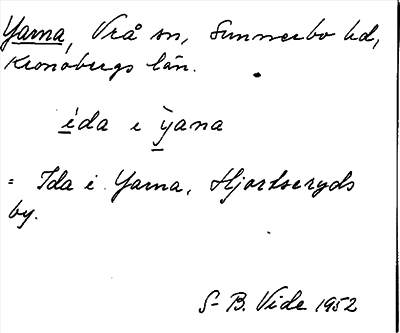 Yarna, Vrå sn, Sunnerbo hd,
Kronobergs län.
ída i ÿana
= Ida i Yarna, Hjortseryds
by.
S-B. Vide 1952